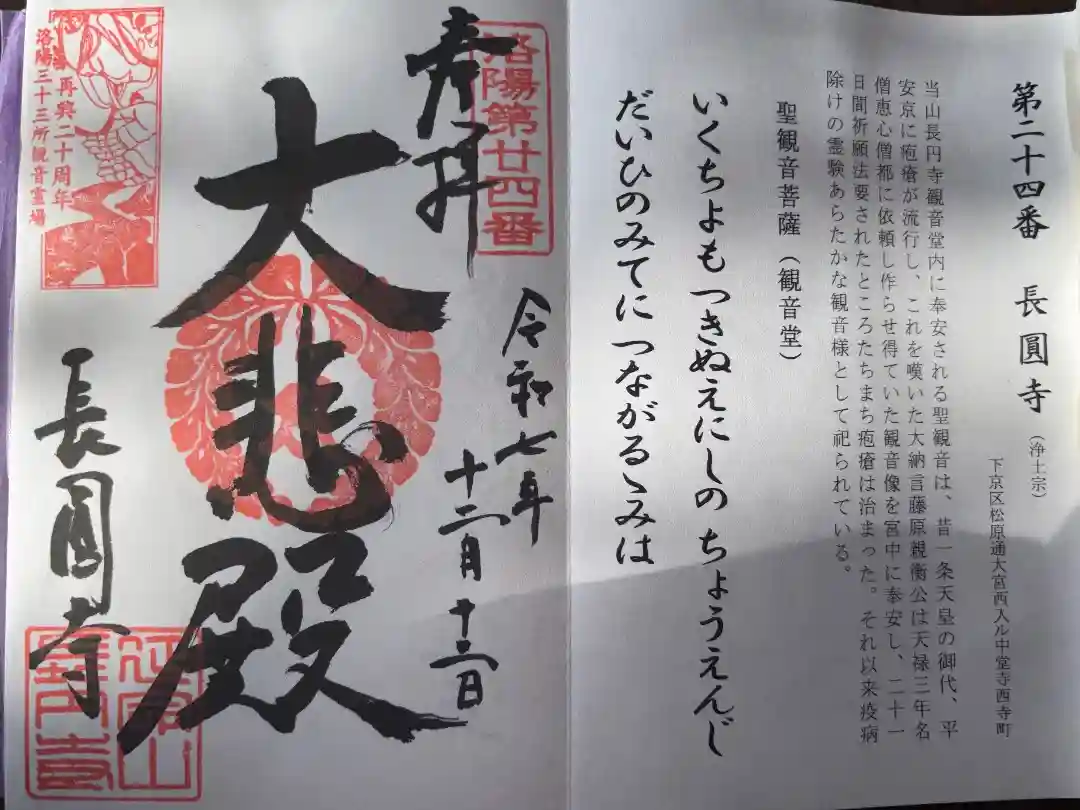 第二十四番 長圓寺(浄土宗)
下京区松原通大宮西入ル中堂寺西寺町
当山長円寺観音堂内に奉安される聖観音は、昔一条天皇の御代、平
安京に疱瘡が流行し、これを嘆いた大納言藤原親衡公は天禄三年名
僧恵心僧都に依頼し作らせ得ていた観音像を宮中に奉安し、二十一
日間祈願法要されたところたちまち疱瘡は治まった。それ以来疫病
除けの霊験あらたかな観音様として祀られている。
聖観音菩薩(観音堂)
いくちよもつきぬえにしの ちょうえんじ
だいひのみてに つながるゝみは
洛陽第廿四番
奉拝
令和七年
十二月十三日
大悲殿
長圓寺
再興二十周年
洛陽三十三所観音霊場